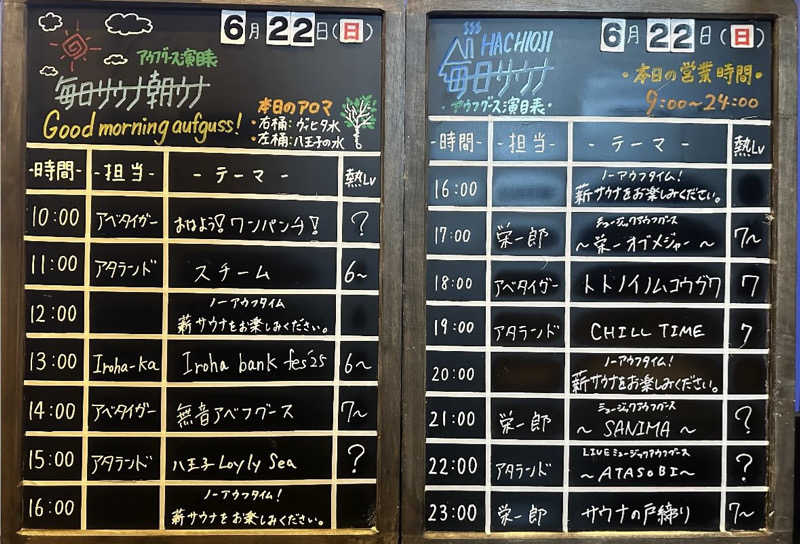 6月22日(日)
アウフグース演目表
毎日サウナ朝ウナ
Good morning aufguss!
本日のアロマ
・右桶:ヴィヒタ水
・左桶:八王子の水
-時間- -担当- -テーマ- 熱Lv
10:00 アベタイガー おはよう!ワンパンチ! ?
11:00 アタランド スチーム 6~
12:00 ノーアウフタイム!
薪サウナをお楽しみください。
13:00 Iroha-ka Iroha bank fes'25 6~
14:00 アベタイガー 無音アベフグース 7~
15:00 アタランド 八王子Loyly Sea ?
16:00 ノーアウフタイム!
薪サウナをお楽しみください。
6月22日(日)
HACHIOJI
毎日サウナ
・アウフグース演目表・
・本日の営業時間・
9:00~24:00
-時間- -担当- -テーマ- 熱Lv
16:00 ノーアウフタイム!
薪サウナをお楽しみください。
17:00 栄一郎 ミュージックアウフグース
~栄一オブメジャー~ 7~
18:00 アベタイガー トトノイノムコウガワ 7
19:00 アタランド CHILL TIME 7
20:00 ノーアウフタイム!
薪サウナをお楽しみください。
21:00 栄一郎 ミュージックアウフグース
~SANIMA~ ?
22:00 アタランド LIVEミュージックアウフグース
~ATASOBI~ ?
23:00 栄一郎 サウナの戸締り 7~